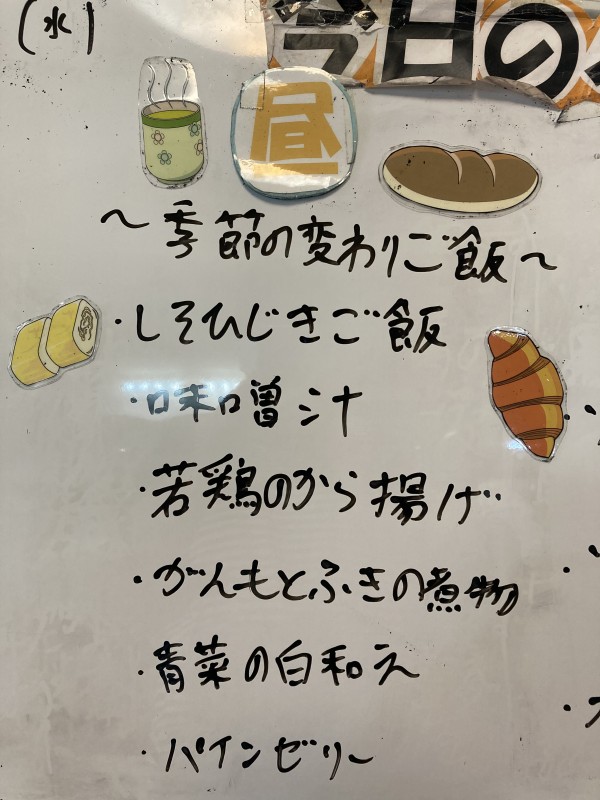 (水)
今日の
昼
～季節の変わりご飯～
・しそひじきご飯
・味噌汁
・若鶏のから揚げ
・がんもとふきの煮物
・青菜の白和え
・パインゼリー